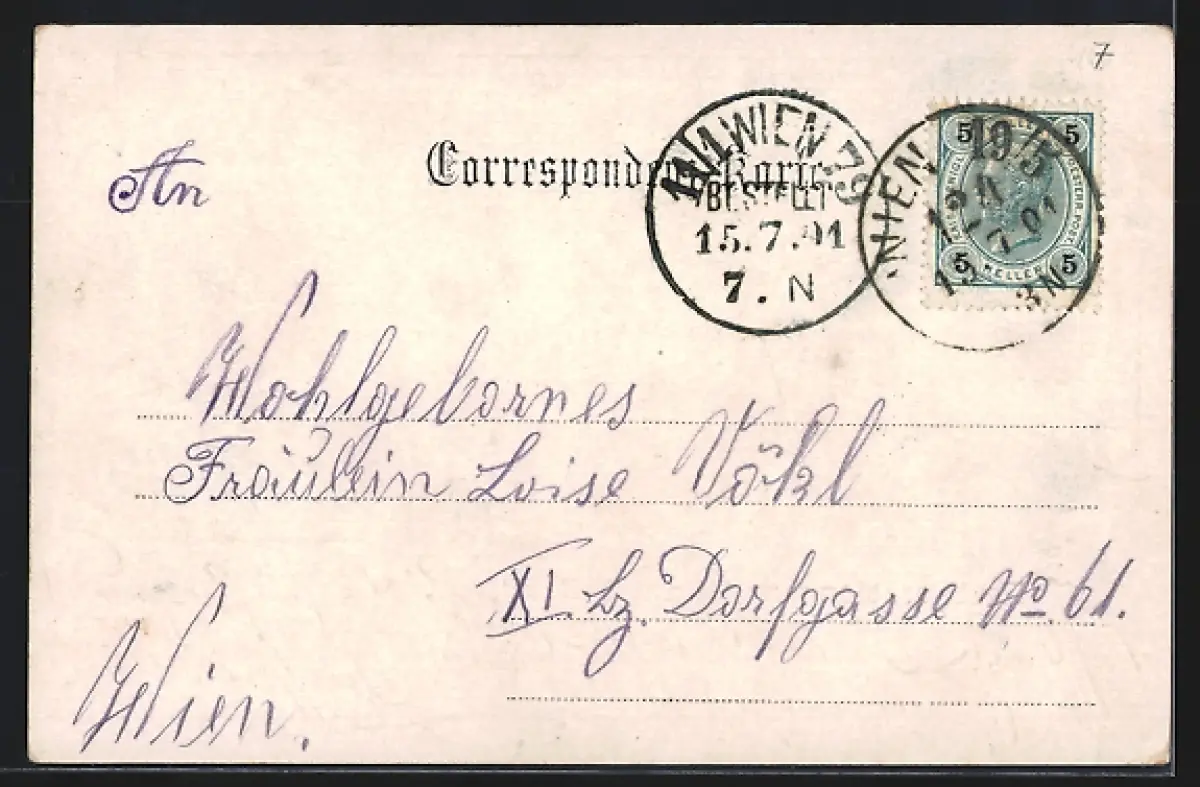 7
Correspondenz-Karte
An
WIEN 79
BESTELLT
15.7.01
7. N
WIEN 19/5
3N
5 5
5 HELLER 5
Wohlgebornes
Fräulein Loise Vökl
XI. Bz. Dorfgasse No. 61.
Wien.